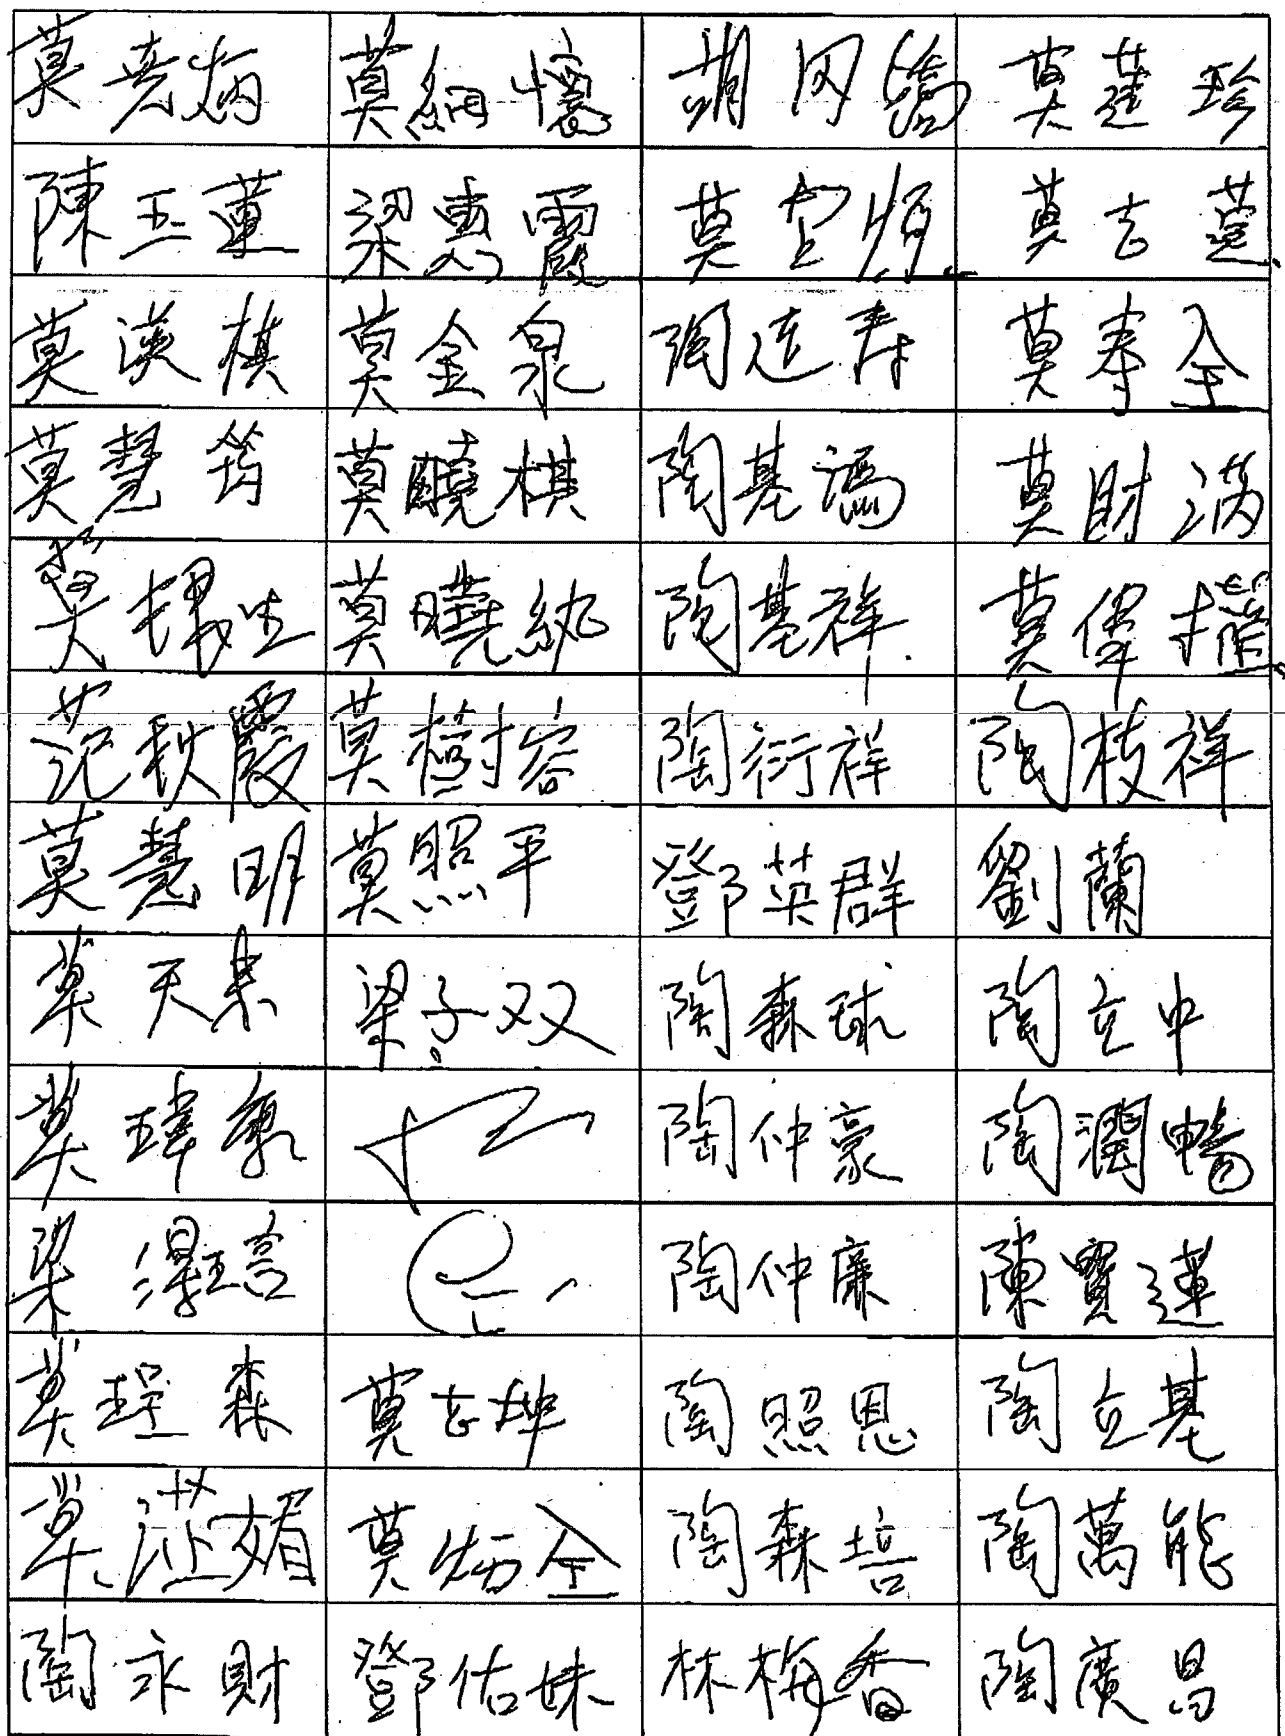 莫 炳 莫綱懷 胡 莫蓮珍
陳玉蓮 梁惠霞 莫 莫 蓮
莫漢棋 莫金泉 陶連寿 莫奉全
莫慧筠 莫曉棋 陶基 莫財满
莫 生 莫曉納 陶基祥 莫偉權
范秋霞 莫樹容 陶衍祥 陶枝祥
莫慧明 莫照平 鄧英群 劉蘭
莫天 梁子双 陶森球 陶立中
莫瑋 陶仲豪 陶潤暢
梁 陶仲廉 陳寶蓮
莫 森 莫志坤 陶照恩 陶立基
莫 媚 莫炳全 陶森培 陶萬能
陶永財 鄧佑妹 林梅香 陶廣昌